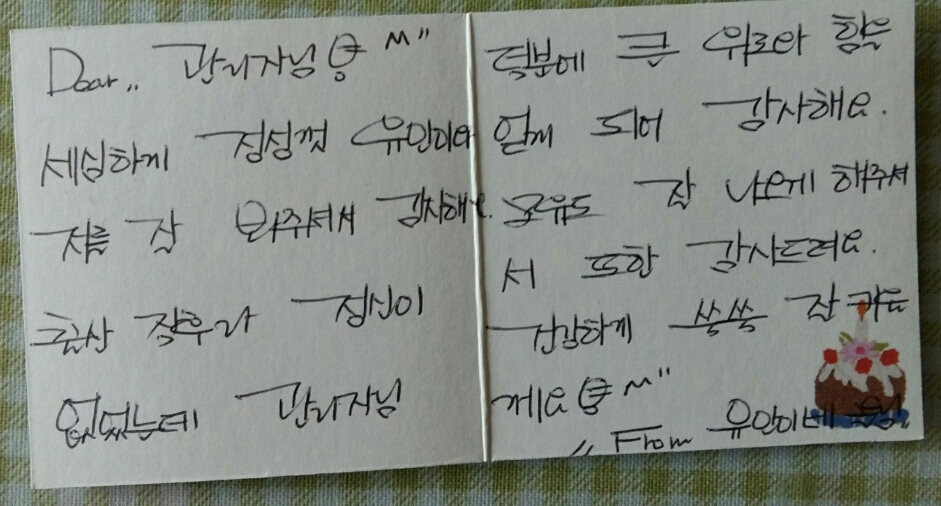 Dear,, 관리자님 ^^"
세심하게 정성껏 유안이와
저를 잘 봐주셔서 감사해요.
출산 직후라 정신이
없었는데 관리자님
덕분에 큰 위로와 힘을
얻게 되어 감사해요.
모유도 잘 나오게 해주셔
서 또한 감사드려요.
건강하게 쑥쑥 잘 키울
게요 ^^"
" From 유안이네